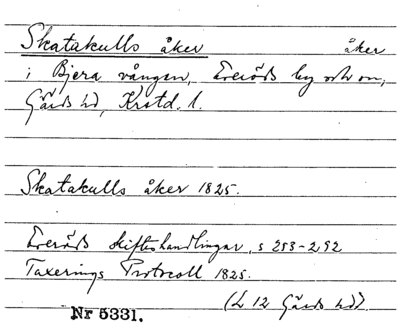 Skatakulls åker åker
i Bjera vången, Everöds by och sn,
Gärds hd, Krstd. l.
Skatakulls åker 1825.
Everöds skifteshandlingar, s 253-292
Taxerings Protocoll 1825.
(L 12 Gärds hd).
Nr 5331.